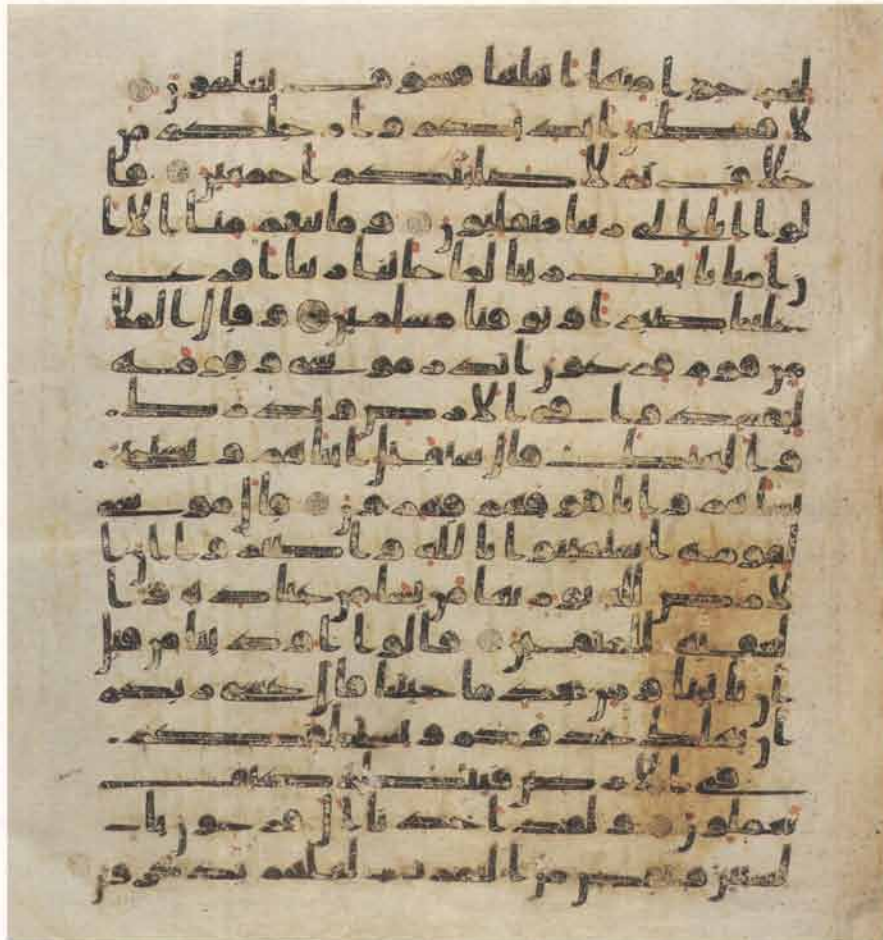 لتخرجوا منها اهلها فسوف تعلمون
لاقطعن ايديكم وارجلكم من
خلف ثم لاصلبنكم اجمعين قا
لوا انا الى ربنا منقلبون وما تنقم منا الا ا
ن امنا بايت ربنا لما جاتنا ربنا افرغ
علينا صبرا وتوفنا مسلمين وقال الملا
من قوم فرعون اتذر موسى وقومه
ليفسدوا في الارض ويذرك
والهتك قال سنقتل ابناهم ونستحي
نساهم وانا فوقهم قهرون قال موسى
لقومه استعينوا بالله واصبروا ان ا
لارض لله يورثها من يشا من عباده وا
لعقبة للمتقين قالوا اوذينا من قبل
ان تاتينا ومن بعد ما جيتنا قال عسى ربكم
ان يهلك عدوكم ويستخلفكم
في الارض فينظر كيف
تعملون ولقد اخذنا ال فرعون با
لسنين ونقص من الثمرت لعلهم يذكرون